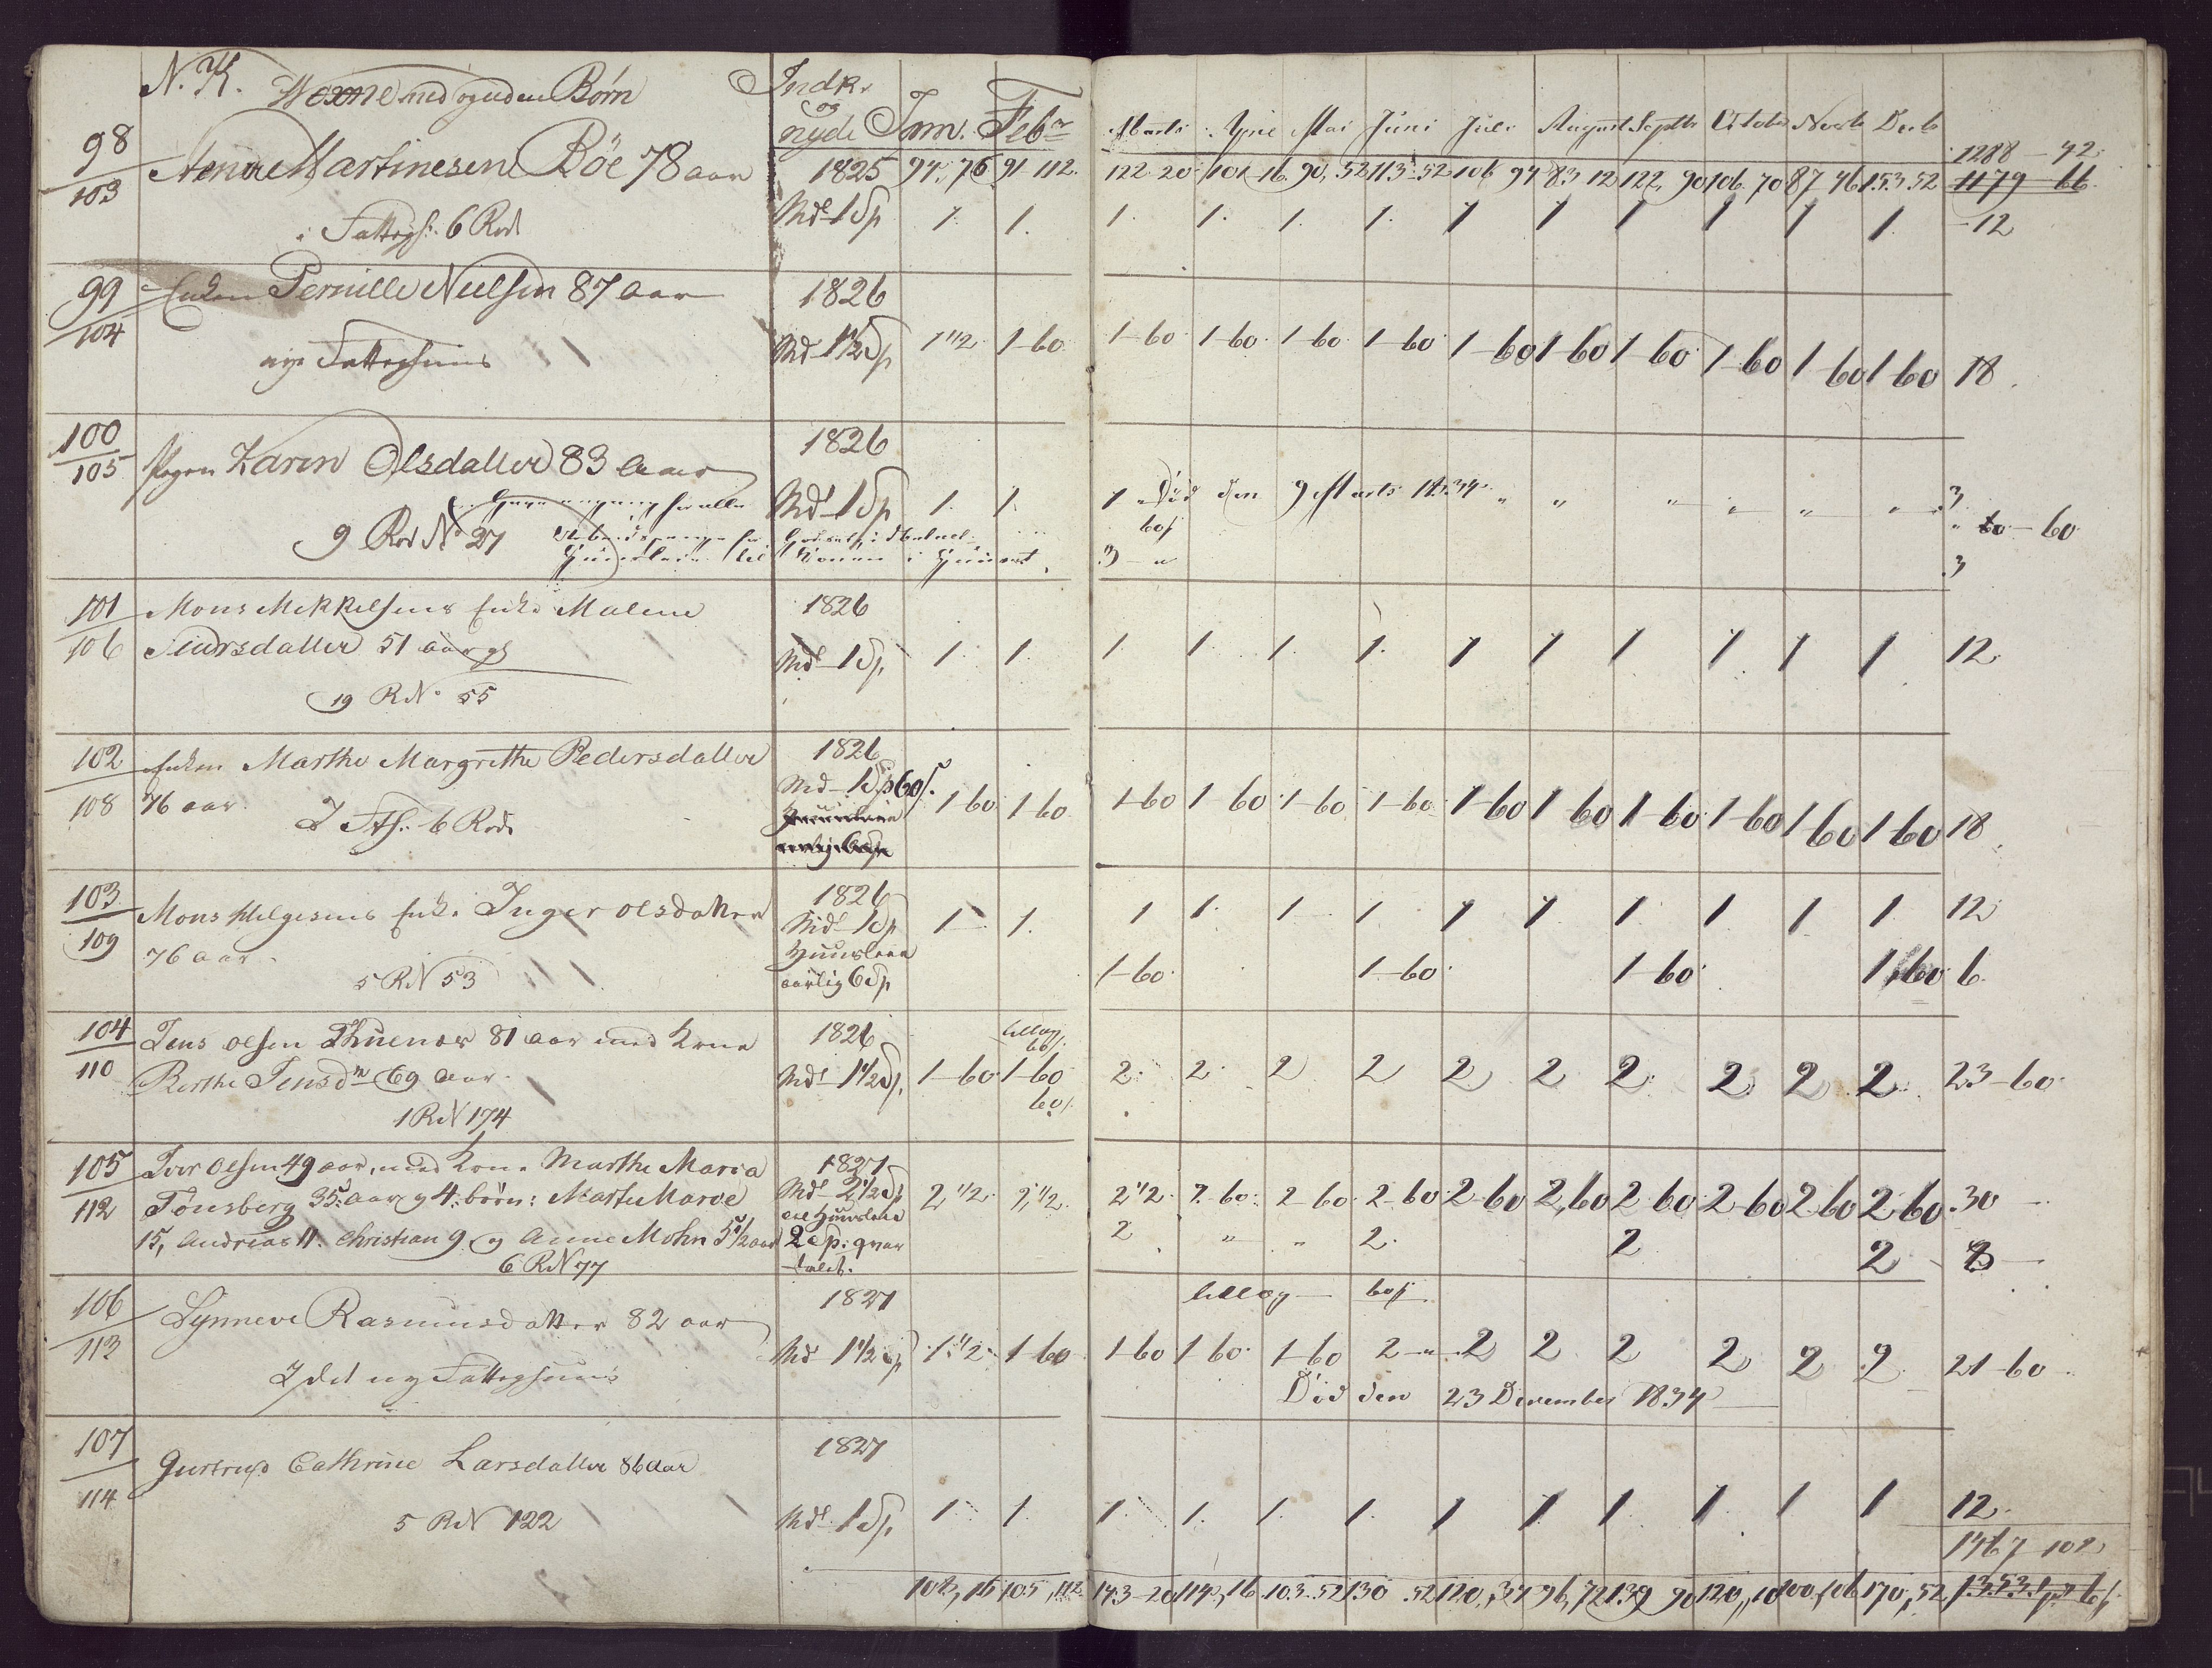 N. K. Voxne med og uden Børn Indk. og nyde Jan. Febr Marts April Mai Juni Juli August Septbr October Novb Decb
1825 94, 76 91 112. 122 20 101 16. 90, 52 113 52 106 94 83 12 122, 90 106 70 87 46 153 52 1288 - 42
1179 - 66
98/103 Martinesen Böe 78 aar Md 1 Sp 1. 1. 1. 1. 1. 1. 1 1 1 1 1 1. 12
i Fattigh. 6 Rod
99/104 Enken Pernille Nielsen 87 aar 1826
nye Fattighuus Md 1 1/2 Sp 1 1/2 1-60 1-60 1-60 1-60 1-60 1-60 1-60 1-60 1-60 1-60 1-60 18
100/105 Pigen Karen Olsdatter 83 Aar 1826
Md 1 Sp 1. 1. 1 Död den 9 Marts 1834 " " " " " " 3
9 Rod No 27 60 - 60
Huusleie til Konen i Huuset 3 - " 3
101/106 Mons Mikkelsens Enke Malene 1826
Siursdatter 51 aar gl Md 1 Sp. 1 1. 1. 1. 1. 1. 1 1 1 1 1 1 12
19 R N. 55
102/108 Enken Marthe Margrethe Pedersdatter 1826
76 aar. Md 1 Sp 60 s. 1-60 1-60 1-60 1-60 1-60 1-60 1-60 1-60 1-60 1-60 1-60 1-60 18
I Fh. 6 Rode
103/109 Mons Helgesens Enke Inger olsdatter 1826
76 aar. Md 1 Sp 1 1. 1 1. 1 1 1 1 1 1 1 1 12
5 R N 53 Huusleie aarlig 6 Sp 1-60 1-60 1-60 1-60 6
104/110 Jens olsen 81 aar med Kone 1826 tillæg 60 s.
Berthe Jensdn 69 aar. Md 1 1/2 Sp. 1-60 1-60 2. 2. 2 2 2 2 2 2 2 2 23-60
1 R N 174 60 s.
105/112 Iver Olsen 49 aar, med Kone Marthe Maria 1827
Tönsberg 35 aar og 4 börn: Marte Marve Md 2 1/2 Sp 2 1/2 2 1/2 2 1/2 2-60 2-60 2-60 2-60 2,60 2-60 2-60 2-60 2-60 30
15, Andreas 11. Christian 9. og Anne Mohn 5 1/2 aar Huusleie 2 Sp. qvartalet. 2 " " 2. 2 2 8
6 R N 77
106/113 Synneve Rasmusdatter 82 aar 1827 tillæg 60 s
I det ny Fattighuus Md 1 1/2 Sp 1 1/2 1-60 1-60 1-60 1-60 2 - " 2 2 2 2 2 2 21-60
Död den 23 December 1834
107/114 Giertrud Cathrine Larsdatter 86 aar 1827
5 R N 122 Md 1 Sp. 1 1. 1. 1. 1. 1. 1 1 1 1. 1 1 12.
1467 102
105, 112 143-20 114, 16 103. 52 130 52 120, 34 96, 72 139 90 170, 52